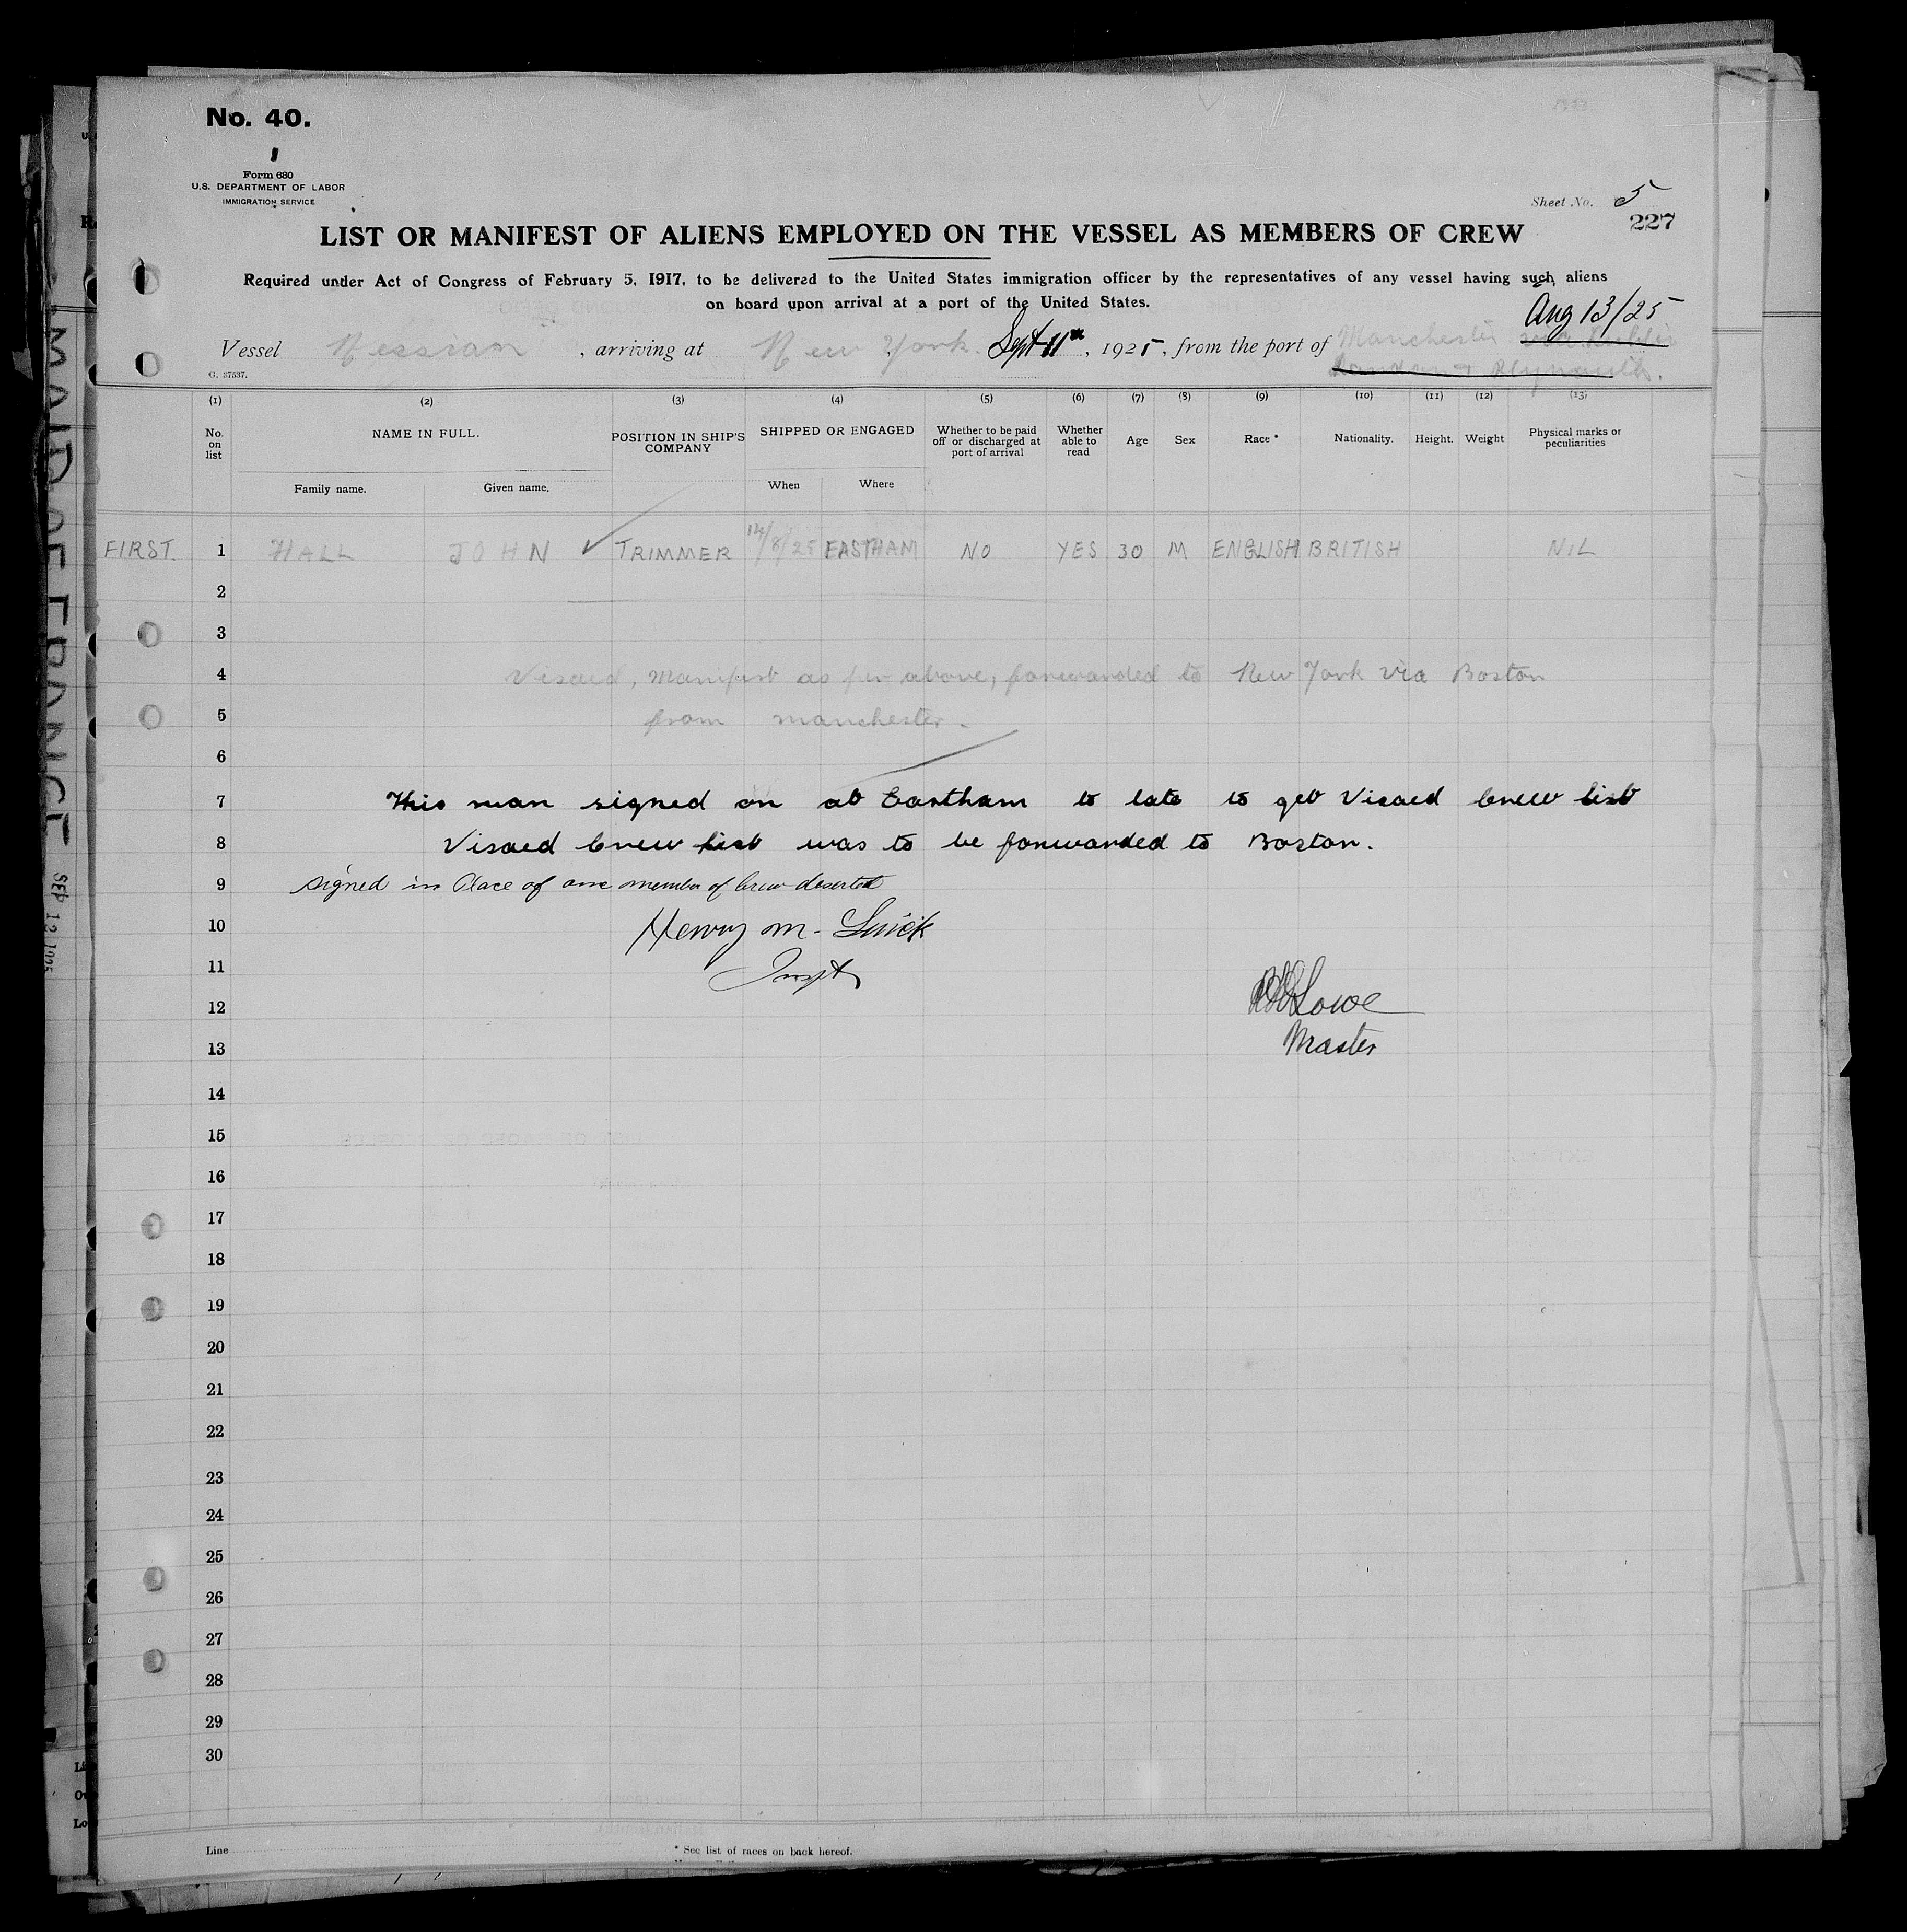 No. 40.
1
Form 680
U.S. DEPARTMENT OF LABOR
IMMIGRATION SERVICE
Sheet No. 5
227
LIST OR MANIFEST OF ALIENS EMPLOYED ON THE VESSEL AS MEMBERS OF CREW
Required under Act of Congress of February 5, 1917, to be delivered to the United States immigration officer by the representatives of any vessel having such aliens
on board upon arrival at a port of the United States.
Aug 13/25
Vessel Nessian, arriving at New York. Sept 11th, 1925, from the port of Manchester via Dublin
London & Plymouth.
G. 37537.
(1) (2) (3) (4) (5) (6) (7) (8) (9) (10) (11) (12) (13)
No. on list NAME IN FULL. POSITION IN SHIP'S COMPANY SHIPPED OR ENGAGED Whether to be paid off or discharged at port of arrival Whether able to read Age Sex Race * Nationality. Height. Weight Physical marks or peculiarities
Family name. Given name. When Where
FIRST. 1 HALL JOHN ✓ TRIMMER 14/8/25 EASTHAM NO YES 30 M ENGLISH BRITISH NIL
2
3
4 Visaed, Manifest as per above, forwarded to New York via Boston
5 from manchester.
6
7 This man signed on at Eastham to late to get Visaed Crew list
8 Visaed Crew list was to be forwarded to Boston.
9 signed in Place of one member of Crew deserted
10 Henry M. Quick
11 Inspt
12 Lowe
13 Master
14
15
16
17
18
19
20
21
22
23
24
25
26
27
28
29
30
Line
* See list of races on back hereof.
MAID OF FRANCE SEP 12 1925